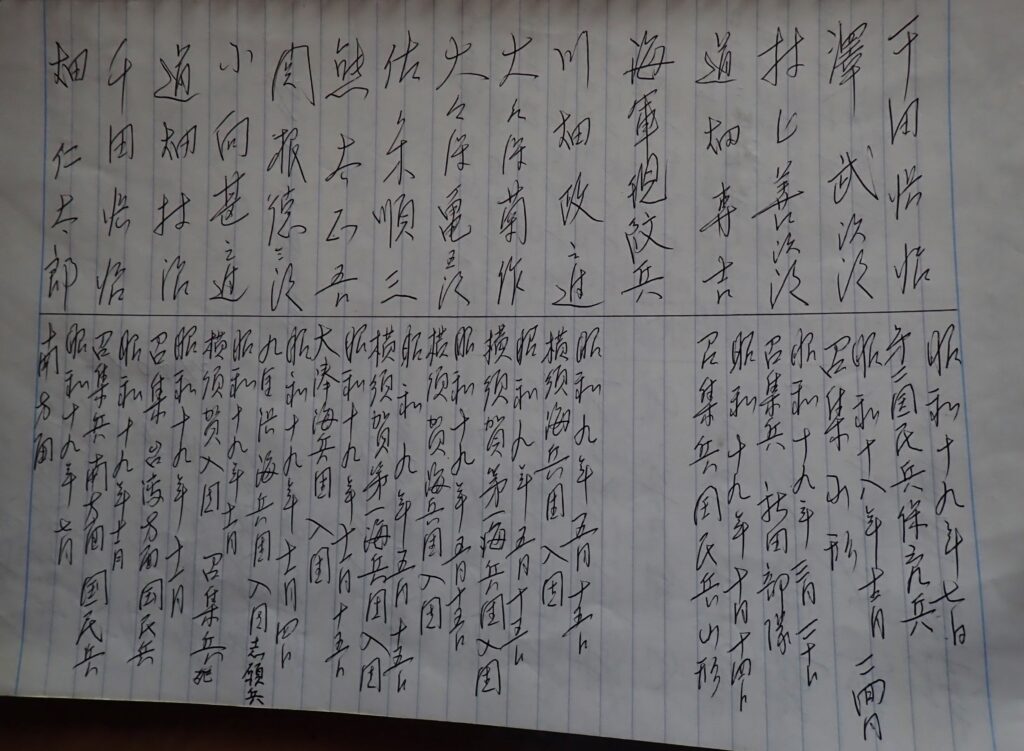 千田悟悟
昭和十九年七日
第二国民兵保充兵
澤武次郎
昭和十八年十二月 二時间
召集 山形
村上善治郎
昭和十九年三月二十日
召集兵 秋田部隊
道畑専吉
昭和十九年十月十四日
召集兵国民兵山形
海軍現役兵
川畑政之進
昭和九年五月十五日
横須海兵団入団
大久保菊作
昭和九年五月十五日
横須賀第一海兵団入団
大久保亀五郎
昭和十九年五月十五日
横須賀海兵団入団
佐々木順三
昭和九年五月十五日
横須賀第一海兵団入団
熊谷正吾
昭和十九年十一月十五日
大湊海兵団入団
関根徳三郎
昭和十九年十一月四日
海兵団入団志願兵
小向甚之進
昭和十九年十二月
横須賀入団 召集兵 死
道畑村治
昭和十九年十一月
召集台湾方面国民兵
千田悟悟
昭和十九年十一月
召集兵南方面 国民兵
畑仁太郎
昭和十九年七月
南方面